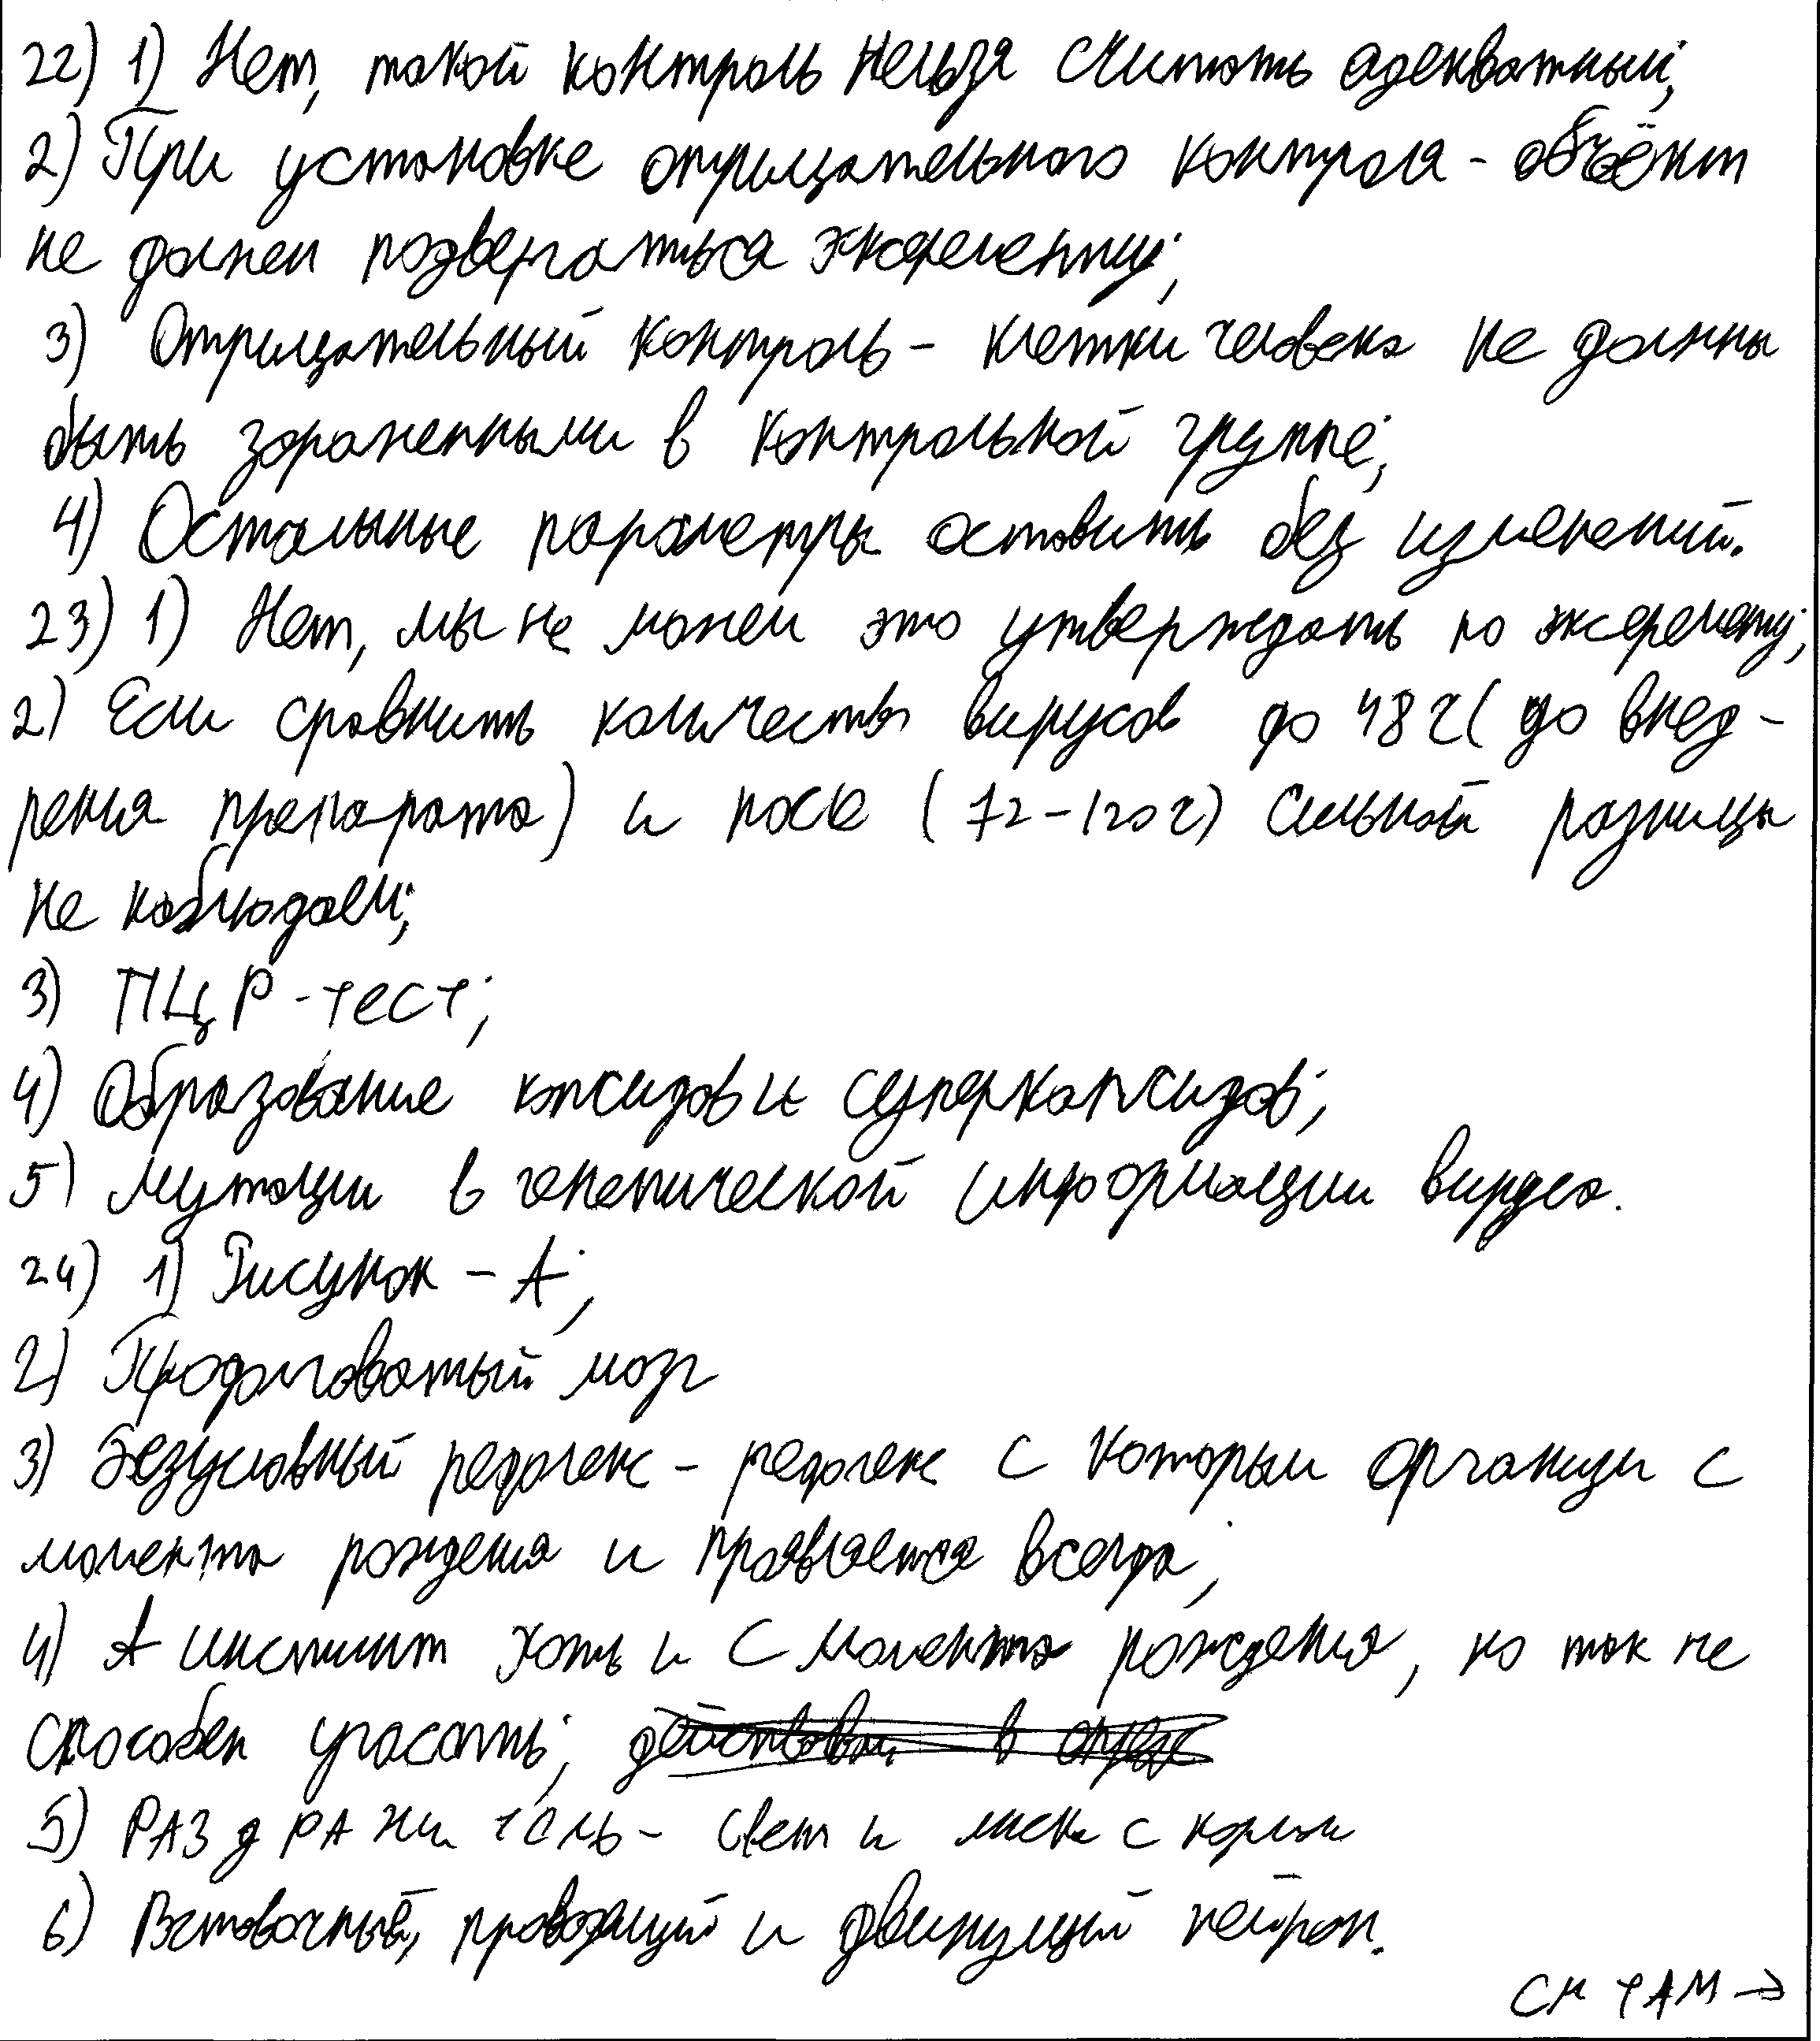 22) 1) Нет, такой контроль нельзя считать адекватный;
2) При установке отрицательного контроля - объект
не должен подвергаться эксеременту;
3) Отрицательный контроль - клетки человека не должны
быть зараженными в контрольной группе;
4) Остальные параметры оставить без изменений.
23) 1) Нет, мы не можем это утверждать по эксеременту;
2) Если сравнить количество вирусов до 48 ч (до внед-
рения препарата) и после (72-120 ч) сильной разницы
не наблюдаем;
3) ПЦР-тест;
4) Образование капсидов и суперкапсидов;
5) Мутации в генетической информации вируса.
24) 1) Рисунок - А;
2) Продолговатый мозг
3) Безусловный рефлекс - рефлекс с которым организм с
момента рождения и проявляется всегда;
4) А инстинкт хоть и с момента рождения, но так не
способен угасать;
5) РАЗдРАЖитель - свет и миска с кормом
6) Вставочный, проводящий и двинущий нейрон.
СМ ТАМ →